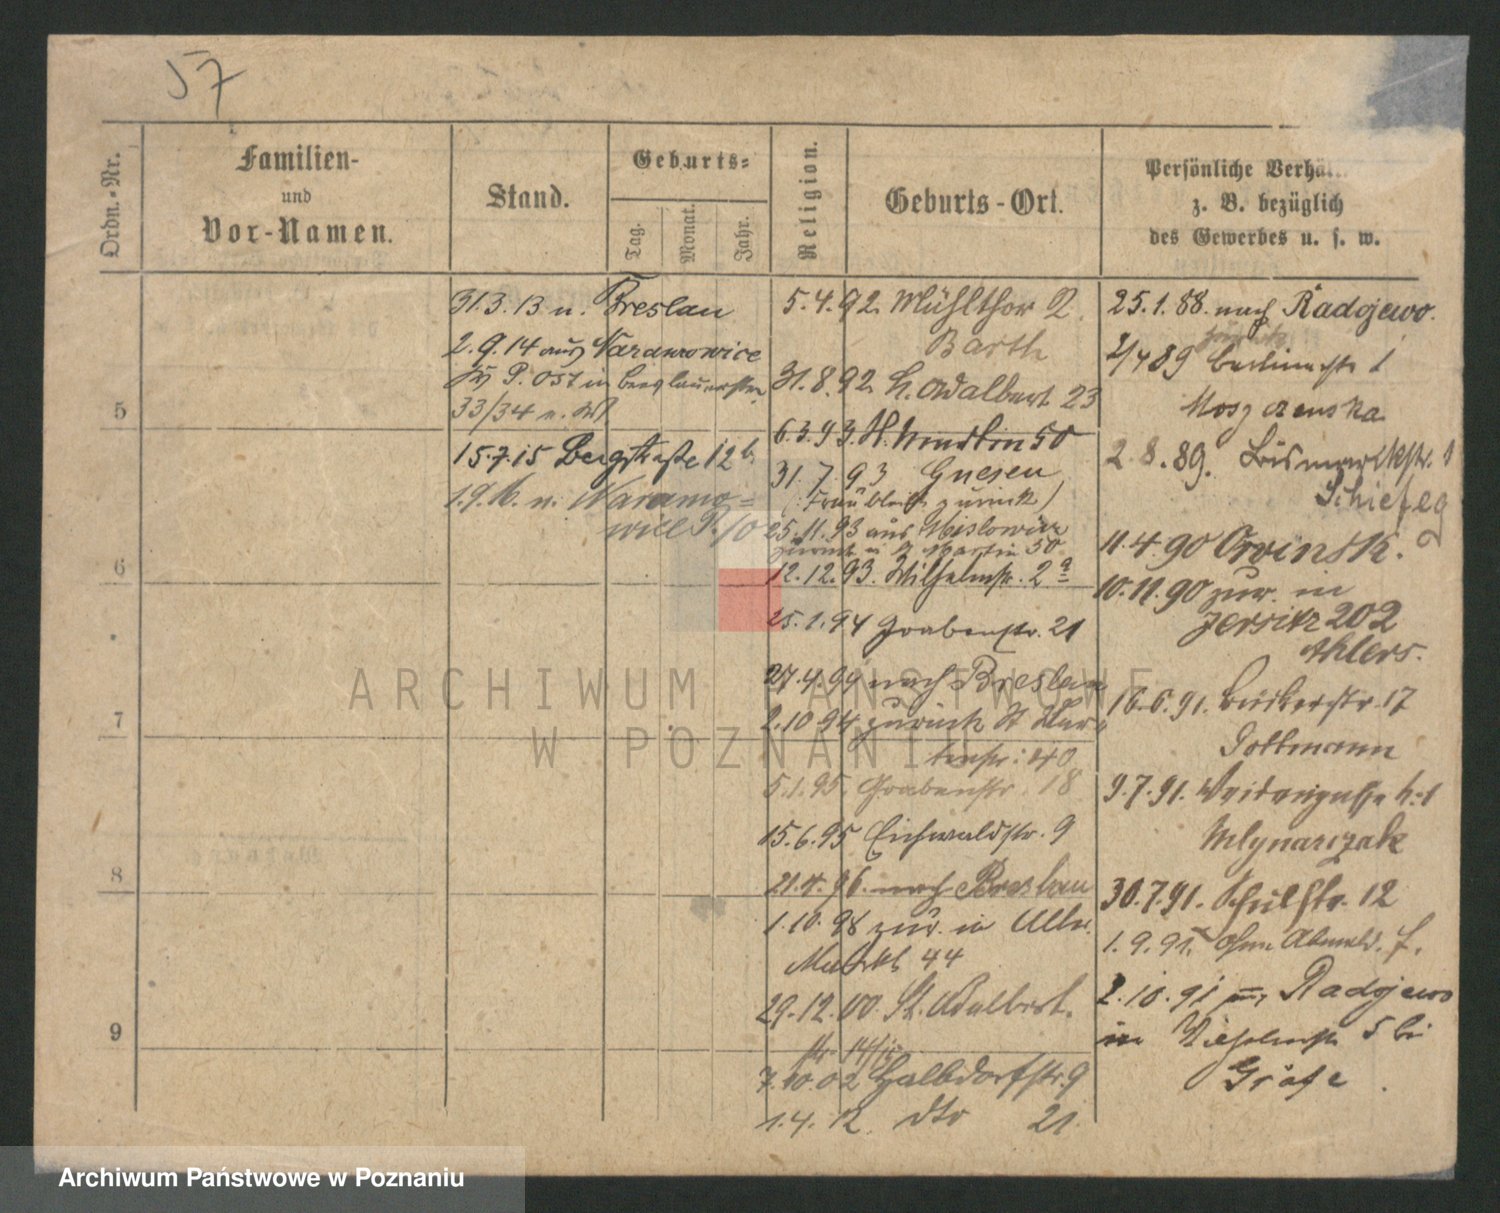 57
Ordn.-Nr.
Familien-
und
Vor-Namen.
Stand.
Geburts-
Tag.
Monat.
Jahr.
Religion.
Geburts-Ort.
Persönliche Verhäl
z. B. bezüglich
des Gewerbes u. s. w.
5
6
7
8
9
31.3.13 n. Breslau
2.9.14 aus Naramowice
33/34
15.7.15 Bergstraße 12b.
1.9.16. n. Naramo=
5.4.92. Mühlthor 2.
Barth
31.8.92. Adalbert 23
6.3.93. 50
31.7.93 Gnesen
zurück)
25.11.93 aus Mislowitz
zurück Martin 50
12.12.93. Wilhelmstr. 2a
25.1.94 Grabenstr. 21
27.4.94 nach Breslau
2.10.94 zurück St Mar=
tinstr: 40
5.1.95. Grabenstr. 18
15.6.95 Eichwaldstr. 9
21.4.96. nach Breslau
1.10.98 zur. in Alter
Markt 44
29.12.00. St. Adalbert.
str 14/15
7.10.02 Halbdorfstr. 9
1.4.12. dto 21.
25.1.88. nach Radojewo.
2/4 89 1
Moszczenska
2.8.89. Bismarckstr. 1
11.4.90
10.11.90 zur. in
Jersitz 202
Ahlers.
16.6.91. Bäckerstr. 17
9.7.91.
Mlynarczak
30.7.91. Schulstr. 12
1.9.91. ohne Abmeld. f.
2.10.91 Radojewo
in 5 bei
Gräfe.
ARCHIWUM PAŃSTWOWE
W POZNANIU
Archiwum Państwowe w Poznaniu